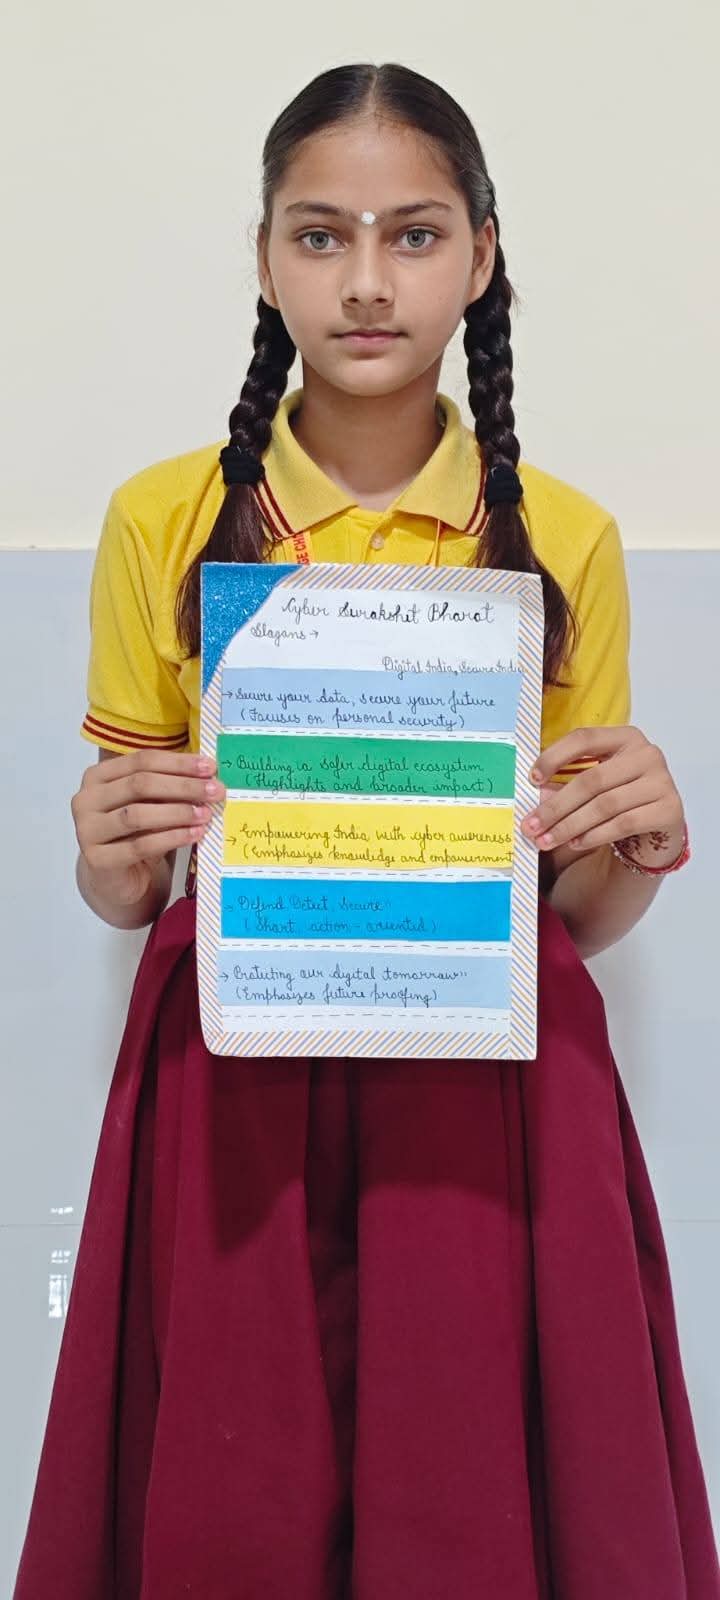 GE CH
Cyber Surakshit Bharat
Slagans →
Digital India, Secure India
→ Secure your data, secure your future
(Facuses on personal security)
→ Building a safer digital ecosystem
(Highlights and broader impact)
→ Empawering India with cyber awereness
(Emphasizes knowledge and empawerment
→ Defend Detect, Secure"
(Shart, action-ariented)
→ Pratecting aur digital tamarraw"
(Emphasizes future proofing)